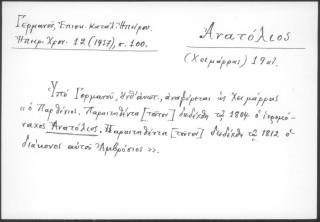 Γερμανοῦ, Ἐπισκ. Κατάλ. Ἠπείρου.
Ἠπειρ. Χρον. 12 (1937), σ. 100.
Ἀνατόλιος
(Χειμάρρας) 19 αἰ.
Ὑπὸ Γερμανοῦ, ἀναφέρεται ὡς Χειμάρρας
« ὁ Παρθένιος. Παραιτηθέντα [τοῦτον] διεδέχθη τῷ 1804 ὁ ἱερομό-
ναχος Ἀνατόλιος. Παραιτηθέντα [τοῦτον] διεδέχθη τῷ 1812 ὁ
διάκονος αὐτοῦ Ἀμβρόσιος ».